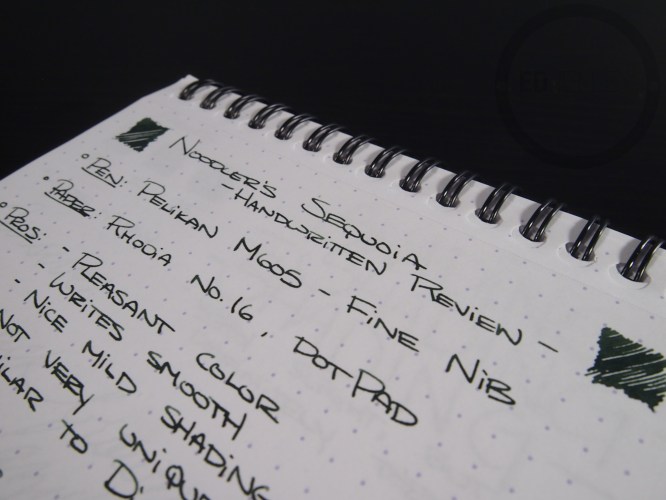 Noodler's Sequoia
- Handwritten Review -
Pen: Pelikan M605 - Fine Nib
Paper: Rhodia No. 16, Dot Pad
Pros: - Pleasant Color
- Writes Smooth
- Nice Mild Shading
Not Very
to